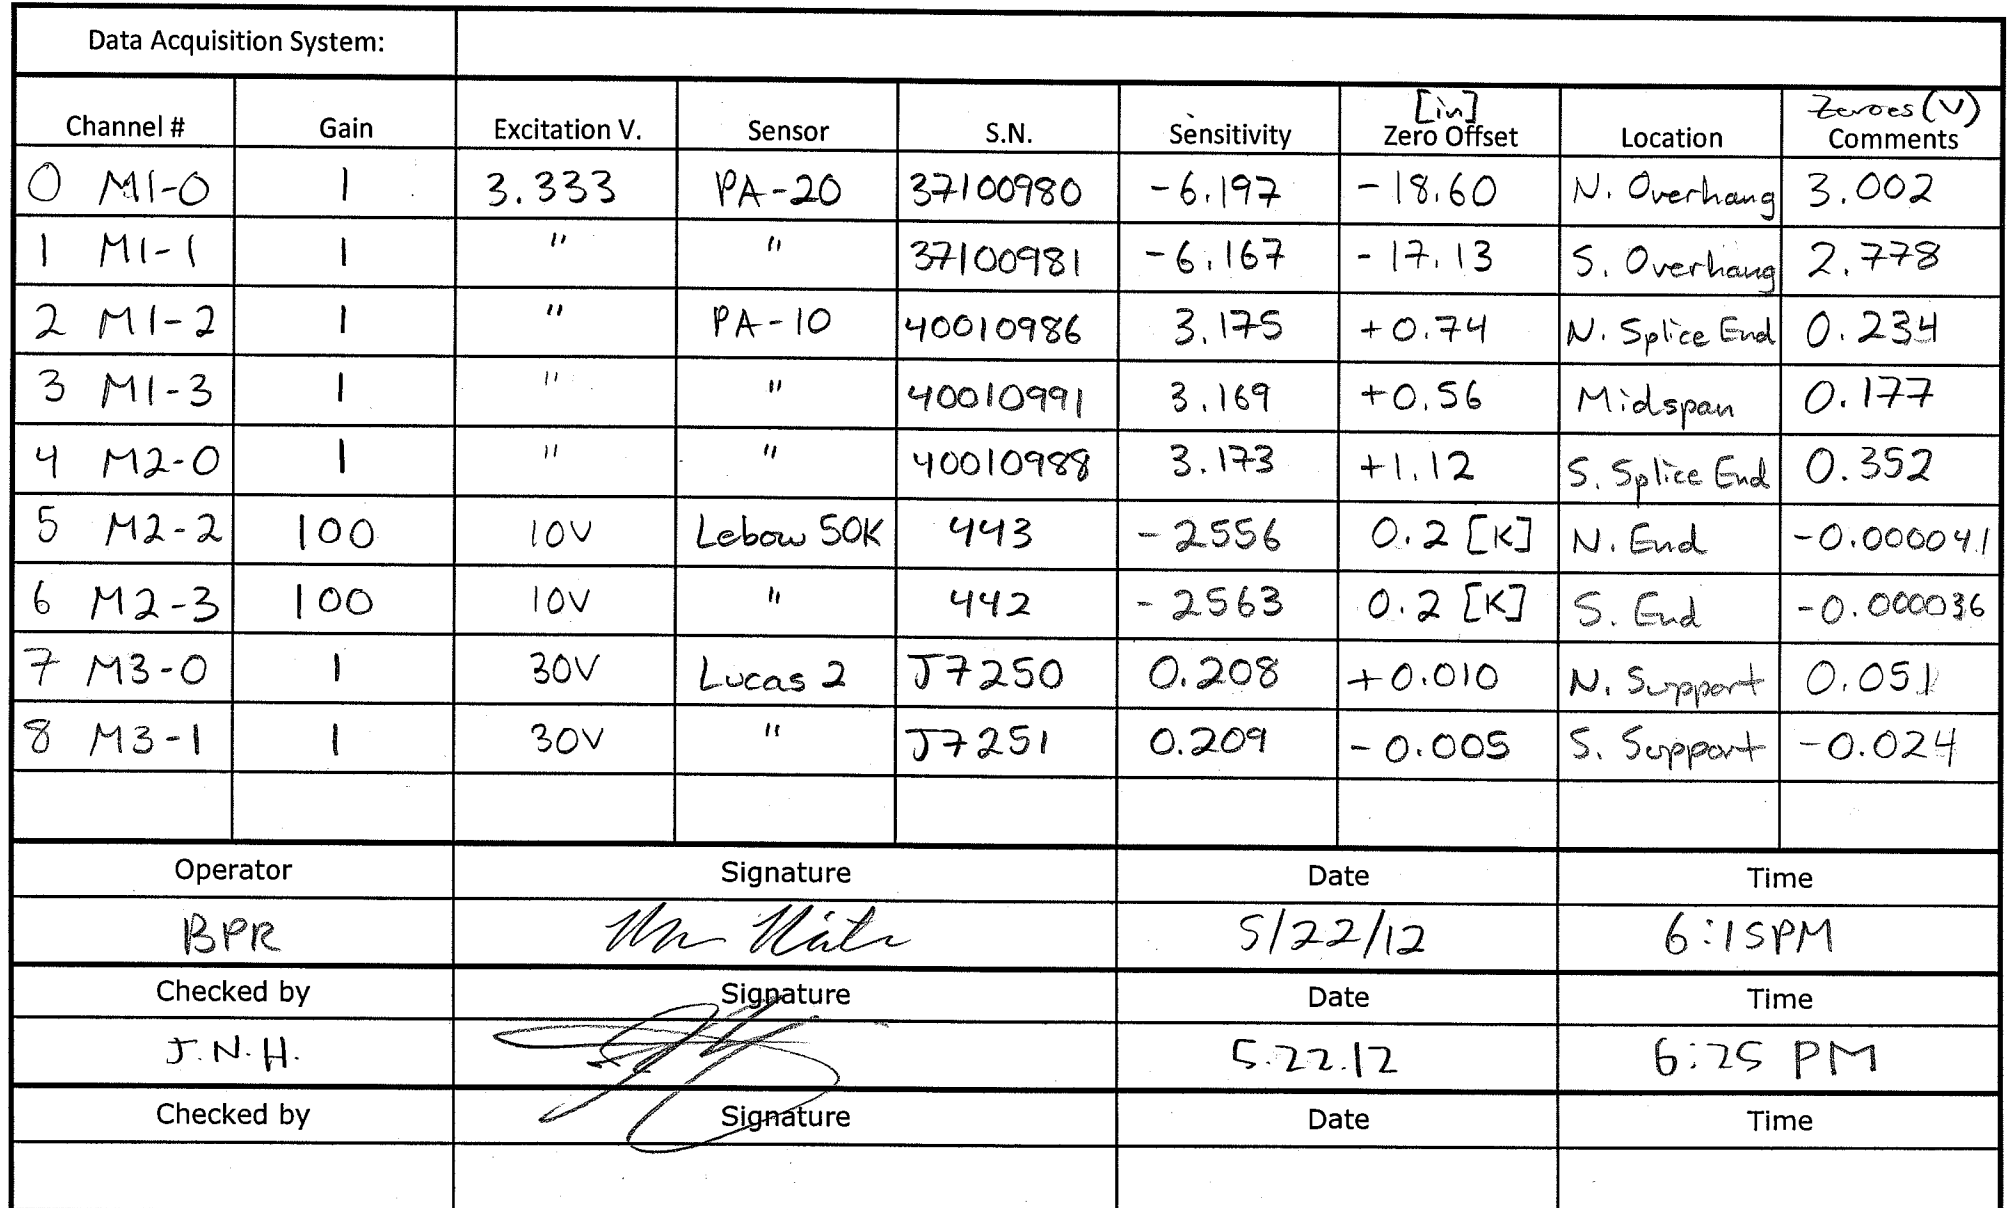 Data Acquisition System:
Channel # Gain Excitation V. Sensor S.N. Sensitivity [in] Zero Offset Location Zeroes (V) Comments
0 M1-0 1 3.333 PA-20 37100980 -6.197 -18.60 N. Overhang 3.002
1 M1-1 1 " " 37100981 -6.167 -17.13 S. Overhang 2.778
2 M1-2 1 " PA-10 40010986 3.175 +0.74 N. Splice End 0.234
3 M1-3 1 " " 40010991 3.169 +0.56 Midspan 0.177
4 M2-0 1 " " 40010988 3.173 +1.12 S. Splice End 0.352
5 M2-2 100 10V Lebow 50K 443 -2556 0.2 [K] N. End -0.000041
6 M2-3 100 10V " 442 -2563 0.2 [K] S. End -0.000036
7 M3-0 1 30V Lucas 2 J7250 0.208 +0.010 N. Support 0.051
8 M3-1 1 30V " J7251 0.209 -0.005 S. Support -0.024
Operator Signature Date Time
BPR 5/22/12 6:15PM
Checked by Signature Date Time
J.N.H. 5.22.12 6:25 PM
Checked by Signature Date Time